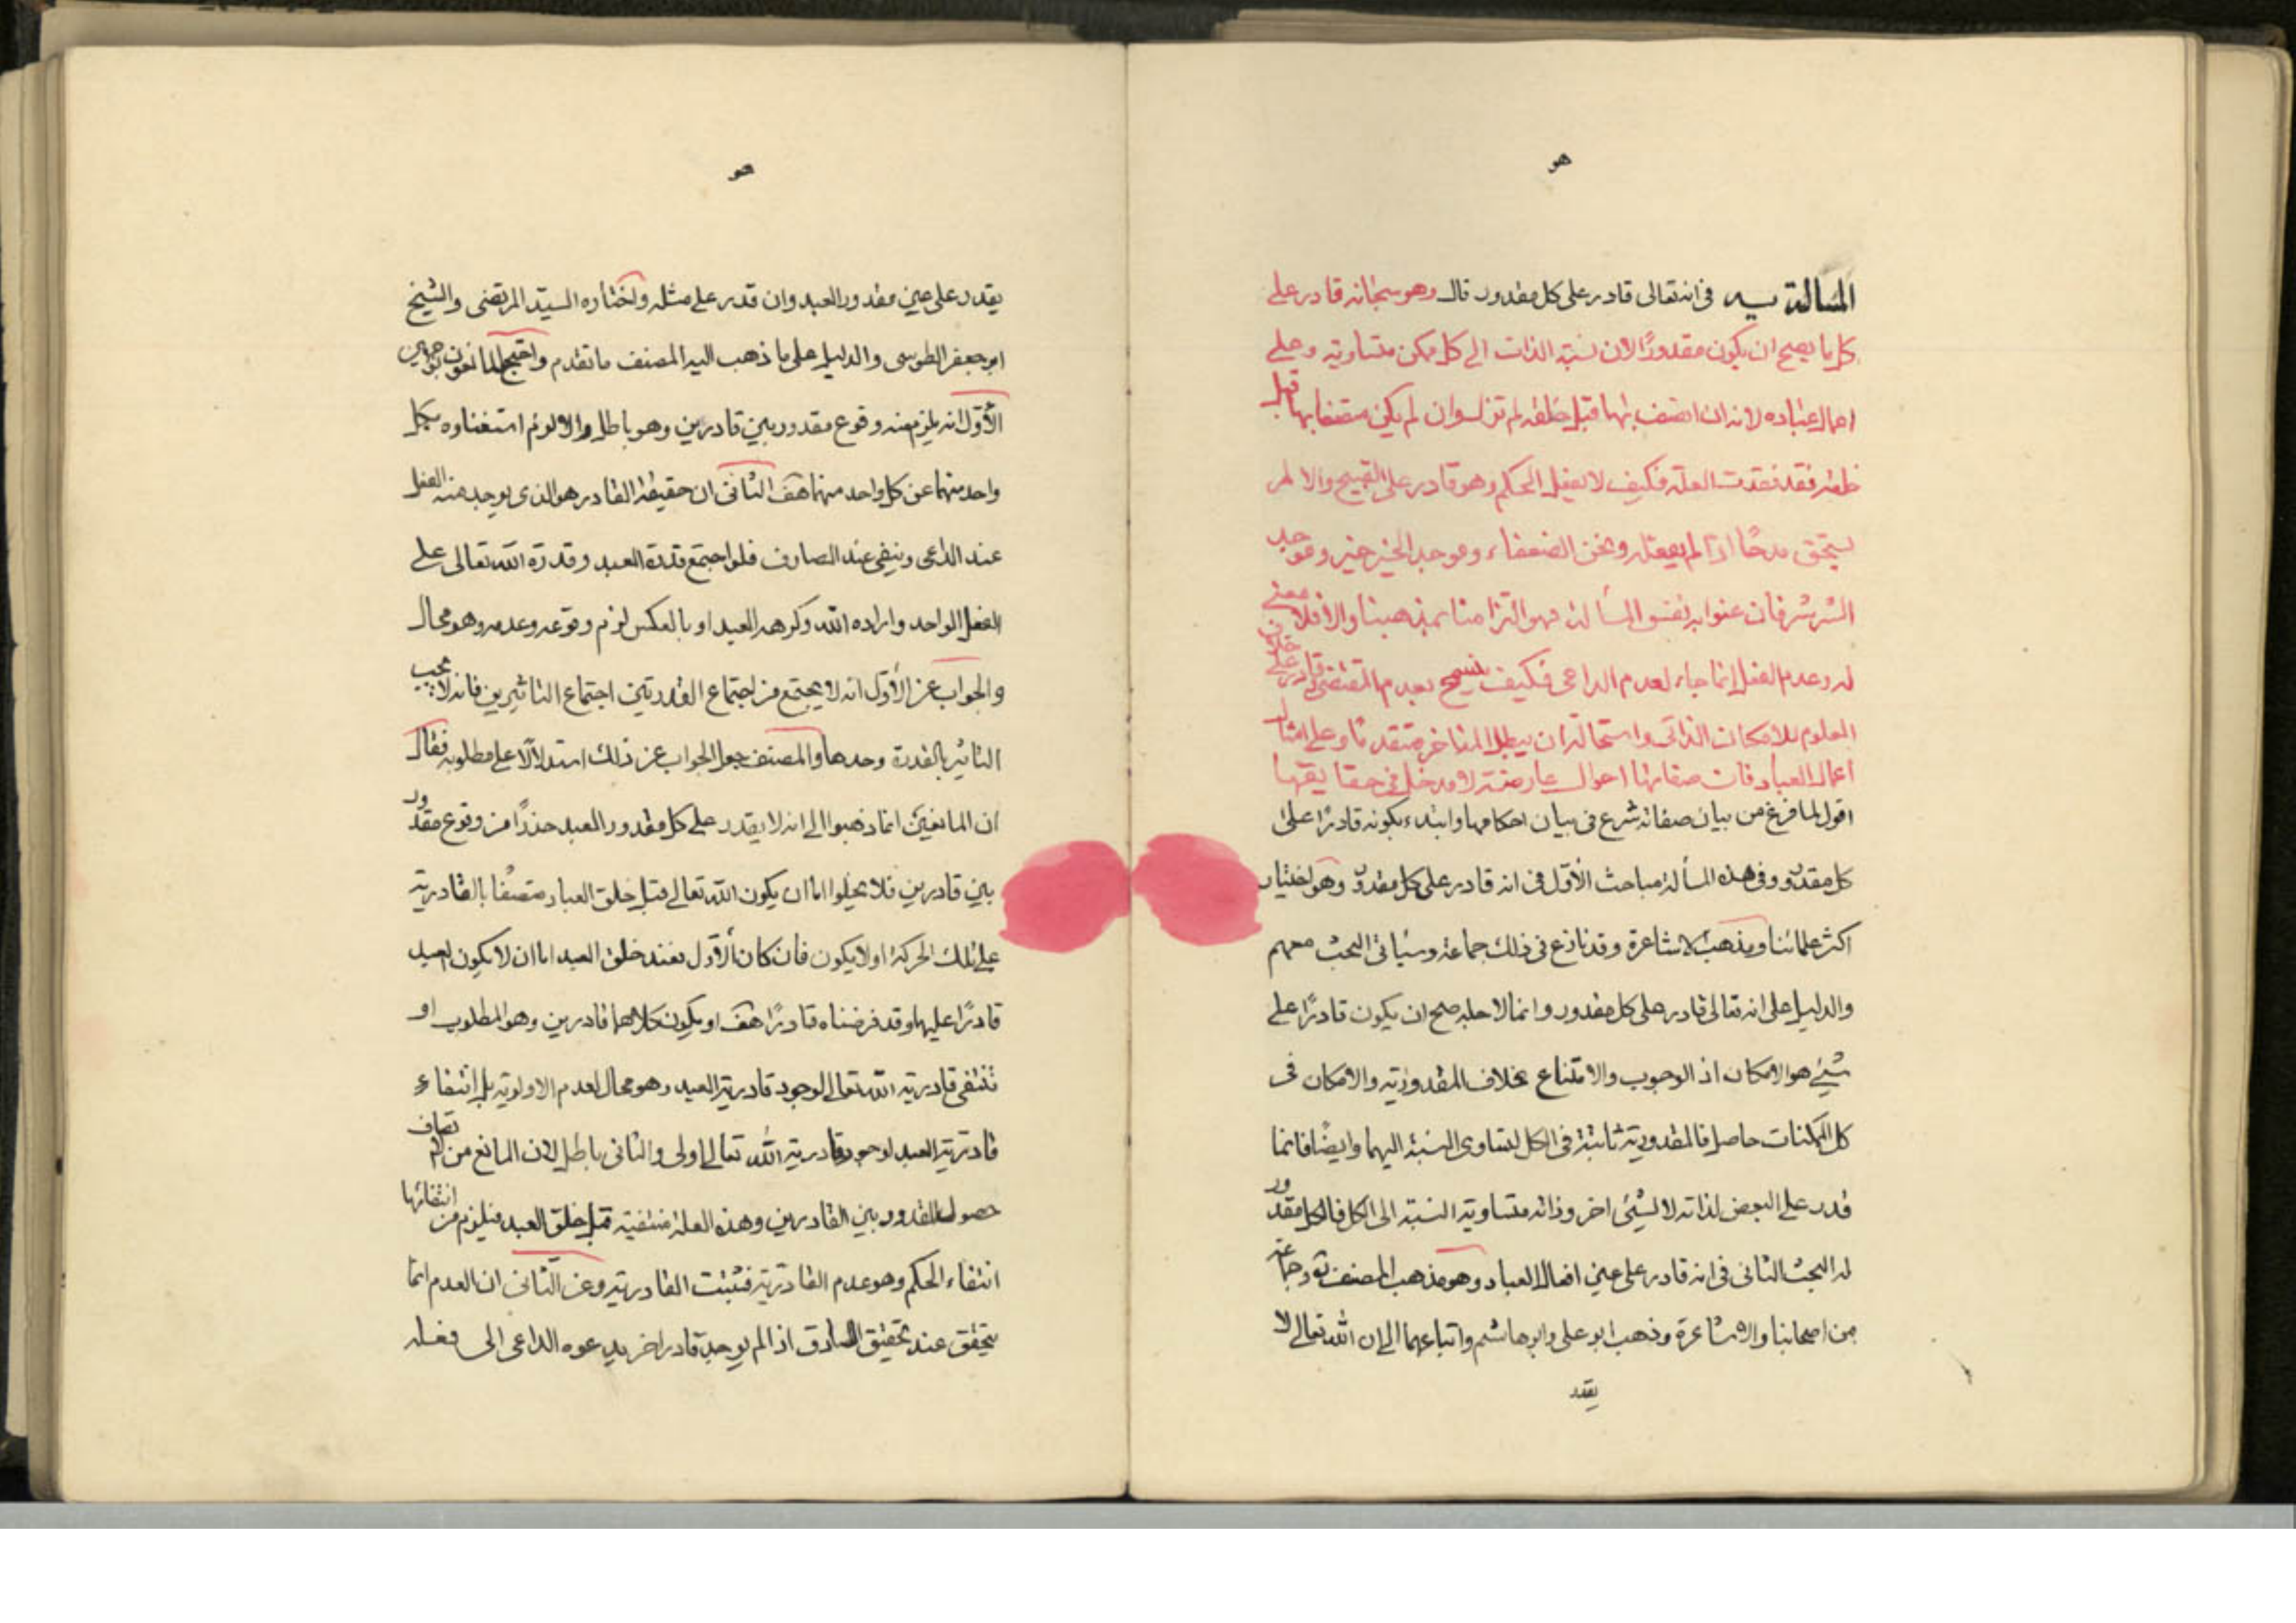 هو
المسألة يه في انه تعالى قادر على كل مقدور قال وهو سبحانه قادر على
كل ما يصح ان يكون مقدورًا لان نسبة الذات الى كل ممكن متساوية وعلى
اعمال عباده لانه ان اتصف بها قبل خلقه لم تزل وان لم يكن متصفا بها قبل
خلقه فقد فقدت العلة فكيف لا يعقل الحكم وهو قادر على القبيح والا لم
يستحق مدحًا اذا لم يفعله ونحن الضعفاء وموجد الخير خير وموجد
الشر شر فان عنوا به نفس المسألة فهو التزامنا بمذهبنا والا فلا معنى
له وعدم الفعل انما جاء لعدم الداعي فكيف بعدم المقتضى قادر على خلاف
المعلوم للامكان الذاتي واستحالة ان يبطل المتاخر متقدما وعلى امثال
اعمال العباد فان صفاتها احوال عارضة لا مدخل في حقايقها
اقول لما فرغ من بيان صفاته شرع في بيان احكامها وابتدء بكونه قادرًا على
كل مقدور وفي هذه المسألة مباحث الأوّل في انه قادر على كل مقدور وهو اختيار
اكثر علمائنا ومذهب الاشاعرة وقد نازع في ذلك جماعة وسيأتي البحث معهم
والدليل على انه تعالى قادر على كل مقدور وانما لاجله صح ان يكون قادرًا على
شيئ هو الامكان اذ الوجوب والامتناع بخلاف المقدورية والامكان في
كل الممكنات حاصل فالمقدورية ثابتة في الكل لتساوي النسبة اليهما وايضًا فانما
قدر على البعض لذاته لا لشيئ اخر وذاته متساوية النسبة الى الكل فالكل مقدور
له البحث الثاني في انه قادر على عين افعال العباد وهو مذهب المصنف ره وجماعة
من اصحابنا والاشاعرة وذهب ابو على وابو هاشم واتباعهما الى ان الله تعالى لا
يقدر
هو
يقدر على عين مقدور العبد وان قدر على مثله واختاره السيّد المرتضى والشيخ
ابو جعفر الطوسى والدليل على ما ذهب اليه المصنف ما تقدم واحتج المانعون بوجهين
الأوّل انه يلزم منه وقوع مقدور بين قادرين وهو باطل والا لزم استغناوه بكل
واحد منهما عن كل واحد منهما هف الثاني ان حقيقة القادر هو الذى يوجد منه الفعل
عند الداعى وينفى عند الصارف فلو اجتمع قدرة العبد وقدرة الله تعالى على
الفعل الواحد واراده الله وكرهه العبد او بالعكس لزم وقوعه وعدمه وهو محال
والجواب عن الأوّل انه لا يجتمع من اجتماع القدرتين اجتماع التاثيرين فانه لا يجب
التاثير بالقدرة وحدها والمصنف جعل الجواب عن ذلك استدلالًا على مطلوبه فقال
ان المانعين انما ذهبوا الى انه لا يقدر على كل مقدور العبد حذرًا من وقوع مقدور
بين قادرين فلا يخلوا اما ان يكون الله تعالى قبل خلق العباد متصفًا بالقادرية
على تلك الحركة او لا يكون فان كان الأوّل فعند خلق العبد اما ان لا يكون العبد
قادرًا عليها وقد فرضناه قادرًا هف او يكون كلاهما قادرين وهو المطلوب او
تنتفى قادرية الله تعالى لوجود قادرية العبد وهو محال لعدم الاولوية بل انتفاء
قادرية العبد لوجود قادرية الله تعالى اولى والثاني باطل لان المانع من اتصافه
حصول المقدور بين القادرين وهذه العلة منتفية قبل خلق العبد فيلزم من انتفائها
انتفاء الحكم وهو عدم القادرية فتثبت القادرية وعن الثّاني ان العدم انما
يتحقق عند تحقيق الصارف اذا لم يوجد قادر اخر يدعوه الداعى الى فعله